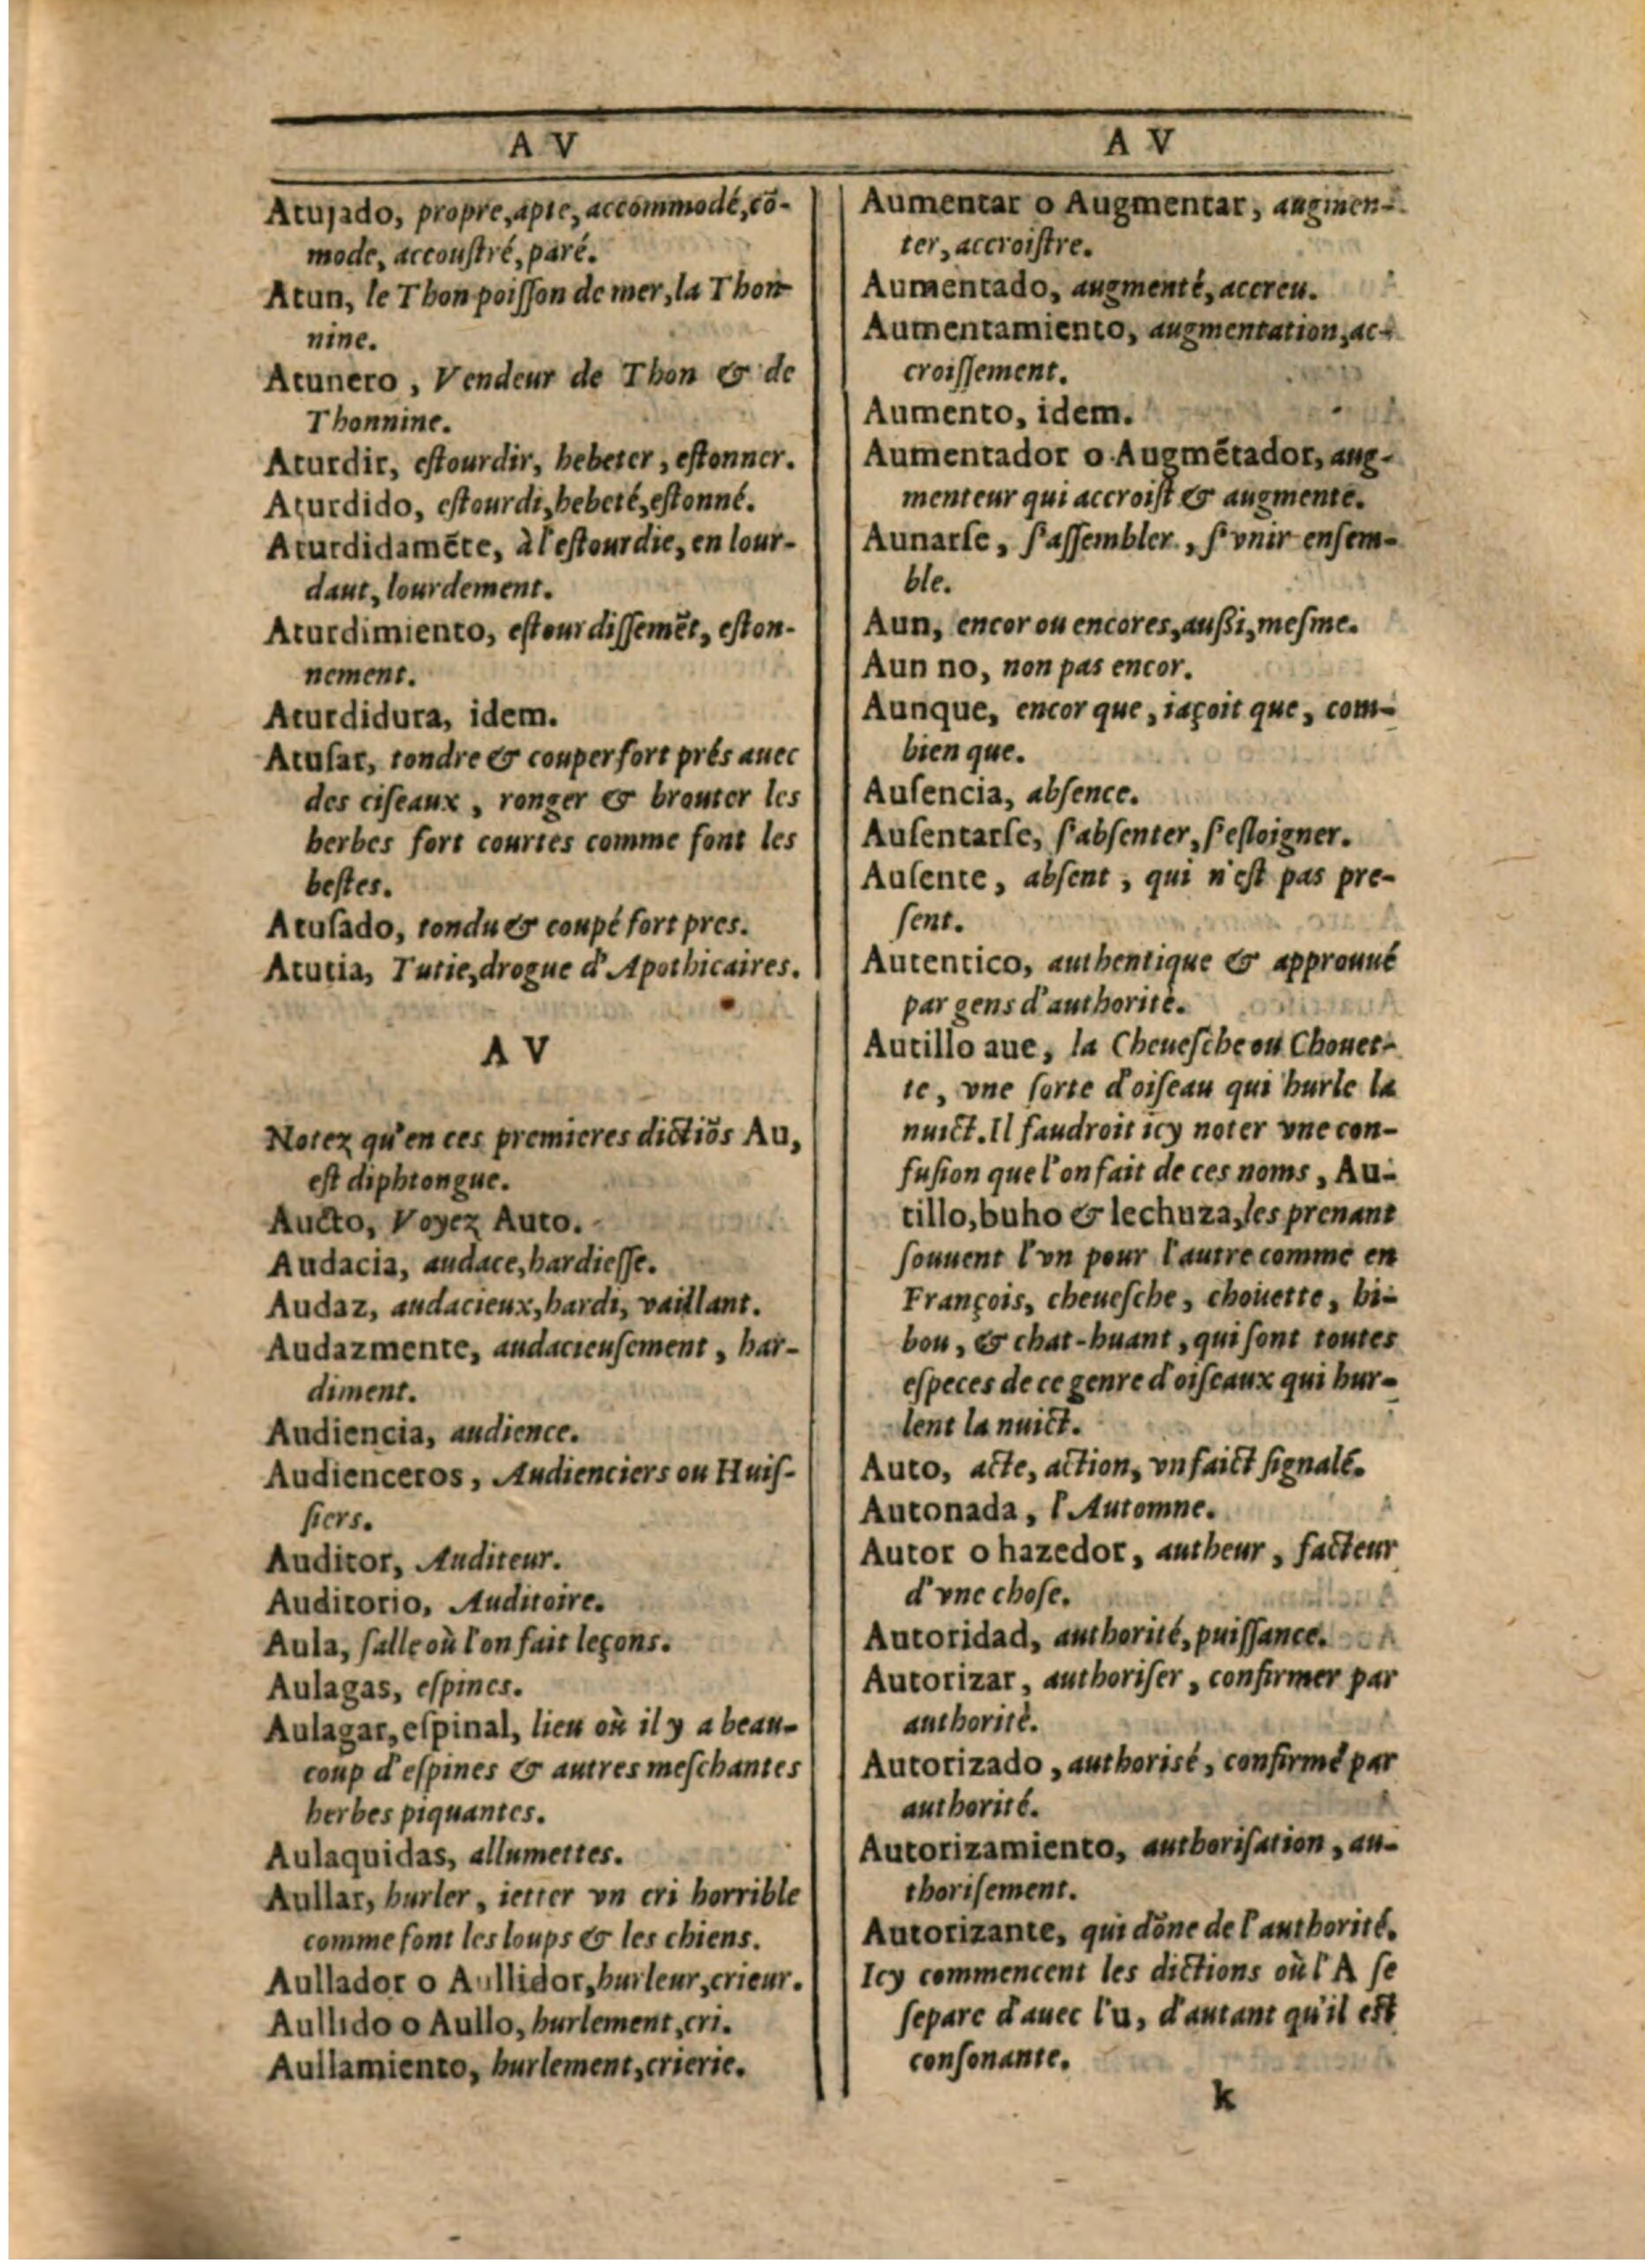 A V
Atujado, propre, apte, accommodé, cõ-
mode, accouſtré, paré.
Atun, le Thon poiſſon de mer, la Thon-
nine.
Atunero, Vendeur de Thon & de
Thonnine.
Aturdir, eſtourdir, hebeter, eſtonner.
Aturdido, eſtourdi, hebeté, eſtonné.
Aturdidamẽte, à l'eſtourdie, en lour-
daut, lourdement.
Aturdimiento, eſtourdiſſemẽt, eſton-
nement.
Aturdidura, idem.
Atuſar, tondre & couper fort prés auec
des ciſeaux, ronger & brouter les
herbes fort courtes comme font les
beſtes.
Atuſado, tondu & coupé fort pres.
Atutia, Tutie, drogue d'Apothicaires.
A V
Notez qu'en ces premieres dictiõs Au,
eſt diphtongue.
Aucto, Voyez Auto.
Audacia, audace, hardieſſe.
Audaz, audacieux, hardi, vaillant.
Audazmente, audacieuſement, har-
diment.
Audiencia, audience.
Audienceros, Audienciers ou Huiſ-
ſiers.
Auditor, Auditeur.
Auditorio, Auditoire.
Aula, ſalle où l'on fait leçons.
Aulagas, eſpines.
Aulagar, eſpinal, lieu où il y a beau-
coup d'eſpines & autres meſchantes
herbes piquantes.
Aulaquidas, allumettes.
Aullar, hurler, ietter vn cri horrible
comme font les loups & les chiens.
Aullador o Aullidor, hurleur, crieur.
Aullido o Aullo, hurlement, cri.
Aullamiento, hurlement, crierie.
A V
Aumentar o Augmentar, augmen-
ter, accroiſtre.
Aumentado, augmenté, accreu.
Aumentamiento, augmentation, ac-
croiſſement.
Aumento, idem.
Aumentador o Augmẽtador, aug-
menteur qui accroiſt & augmente.
Aunarſe, ſ'aſſembler, ſ'vnir enſem-
ble.
Aun, encor ou encores, auſſi, meſme.
Aun no, non pas encor.
Aunque, encor que, iaçoit que, com-
bien que.
Auſencia, abſence.
Auſentarſe, ſ'abſenter, ſ'eſloigner.
Auſente, abſent, qui n'eſt pas pre-
ſent.
Autentico, authentique & approuué
par gens d'authorité.
Autillo aue, la Cheueſche ou Chouet-
te, vne ſorte d'oiſeau qui hurle la
nuict. Il faudroit icy noter vne con-
fuſion que l'on fait de ces noms, Au-
tillo, buho & lechuza, les prenant
ſouuent l'vn pour l'autre comme en
François, cheueſche, choüette, hi-
bou, & chat-huant, qui ſont toutes
eſpeces de ce genre d'oiſeaux qui hur-
lent la nuict.
Auto, acte, action, vn faict ſignalé.
Autonada, l'Automne.
Autor o hazedor, autheur, facteur
d'vne choſe.
Autoridad, authorité, puiſſance.
Autorizar, authoriſer, confirmer par
authorité.
Autorizado, authorisé, confirmé par
authorité.
Autorizamiento, authoriſation, au-
thoriſement.
Autorizante, qui dõne de l'authorité.
Icy commencent les dictions où l'A ſe
ſepare d'auec l'u, d'autant qu'il eſt
conſonante.
k